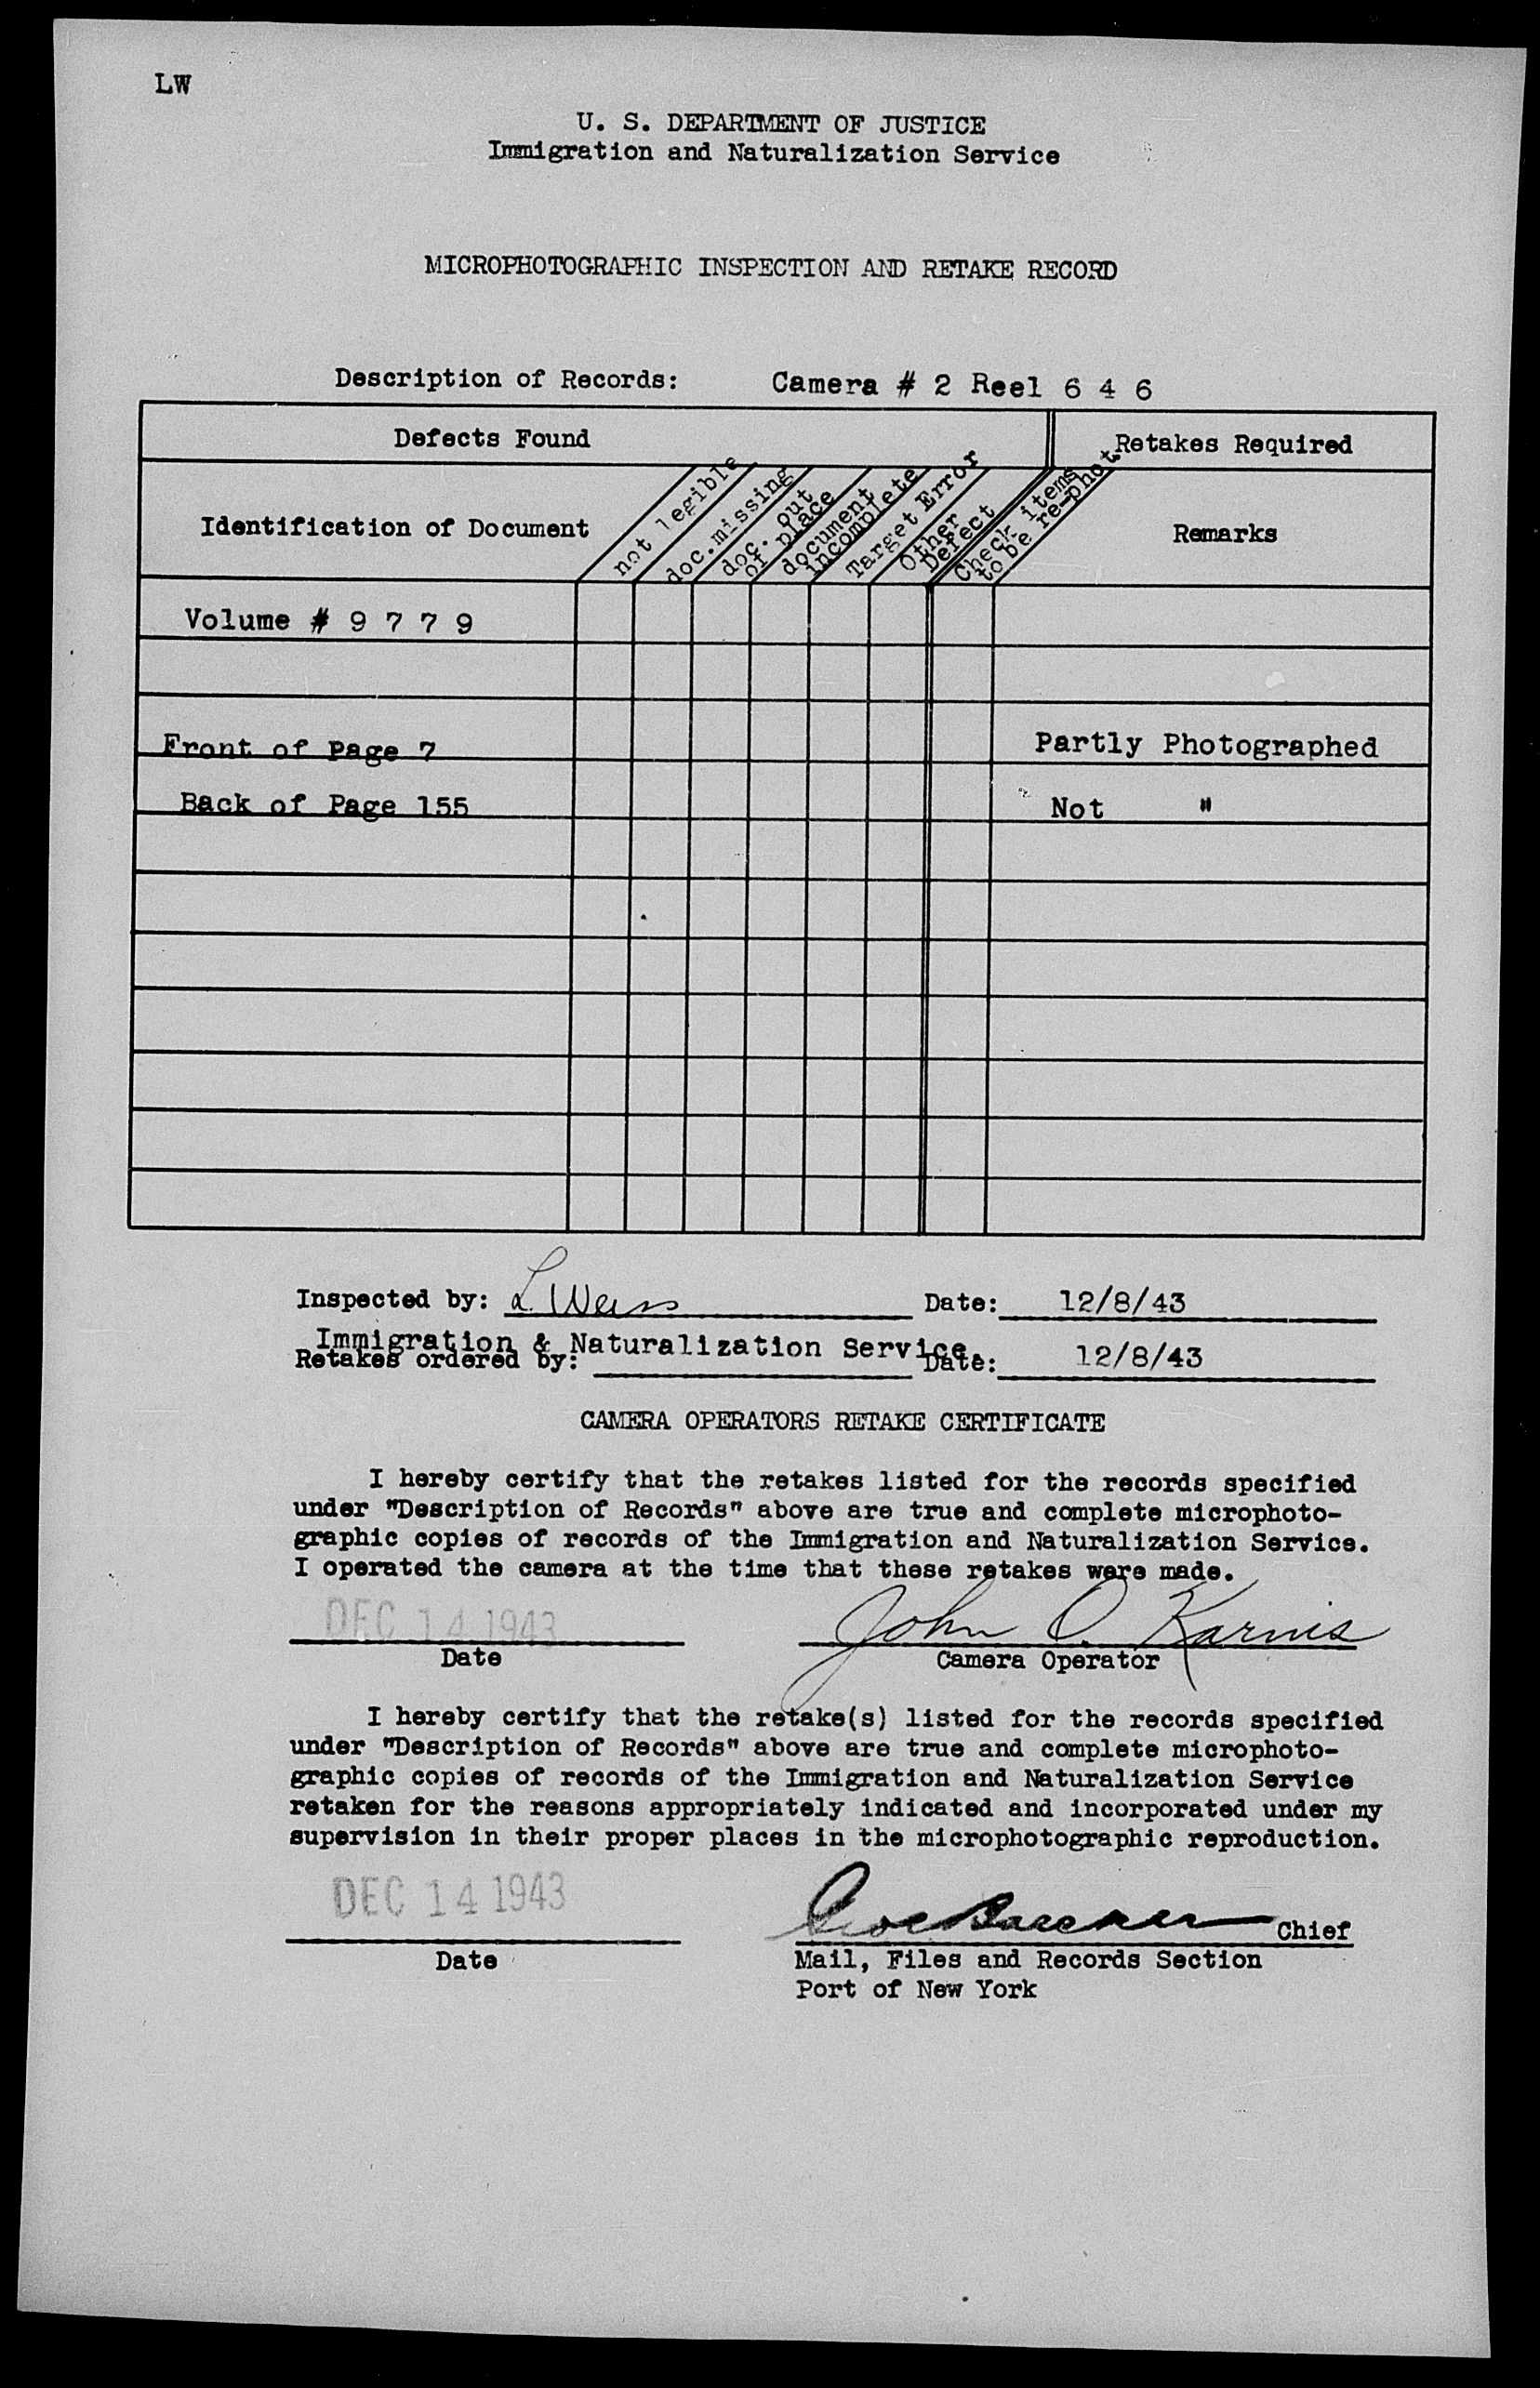 LW
U. S. DEPARTMENT OF JUSTICE
Immigration and Naturalization Service
MICROPHOTOGRAPHIC INSPECTION AND RETAKE RECORD
Description of Records: Camera # 2 Reel 6 4 6
Defects Found
Retakes Required
Identification of Document
not legible
doc. missing
doc. out
of place
document
incomplete
Target Error
Other
Defect
Check items
to be re-phot.
Remarks
Volume # 9 7 7 9
Front of Page 7 Partly Photographed
Back of Page 155 Not "
Inspected by: L. Weiss Date: 12/8/43
Immigration & Naturalization Service.
Retakes ordered by: Date: 12/8/43
CAMERA OPERATORS RETAKE CERTIFICATE
I hereby certify that the retakes listed for the records specified
under "Description of Records" above are true and complete microphoto-
graphic copies of records of the Immigration and Naturalization Service.
I operated the camera at the time that these retakes were made.
DEC 14 1943 John O. Karnis
Date Camera Operator
I hereby certify that the retake(s) listed for the records specified
under "Description of Records" above are true and complete microphoto-
graphic copies of records of the Immigration and Naturalization Service
retaken for the reasons appropriately indicated and incorporated under my
supervision in their proper places in the microphotographic reproduction.
DEC 14 1943
Chief
Date Mail, Files and Records Section
Port of New York